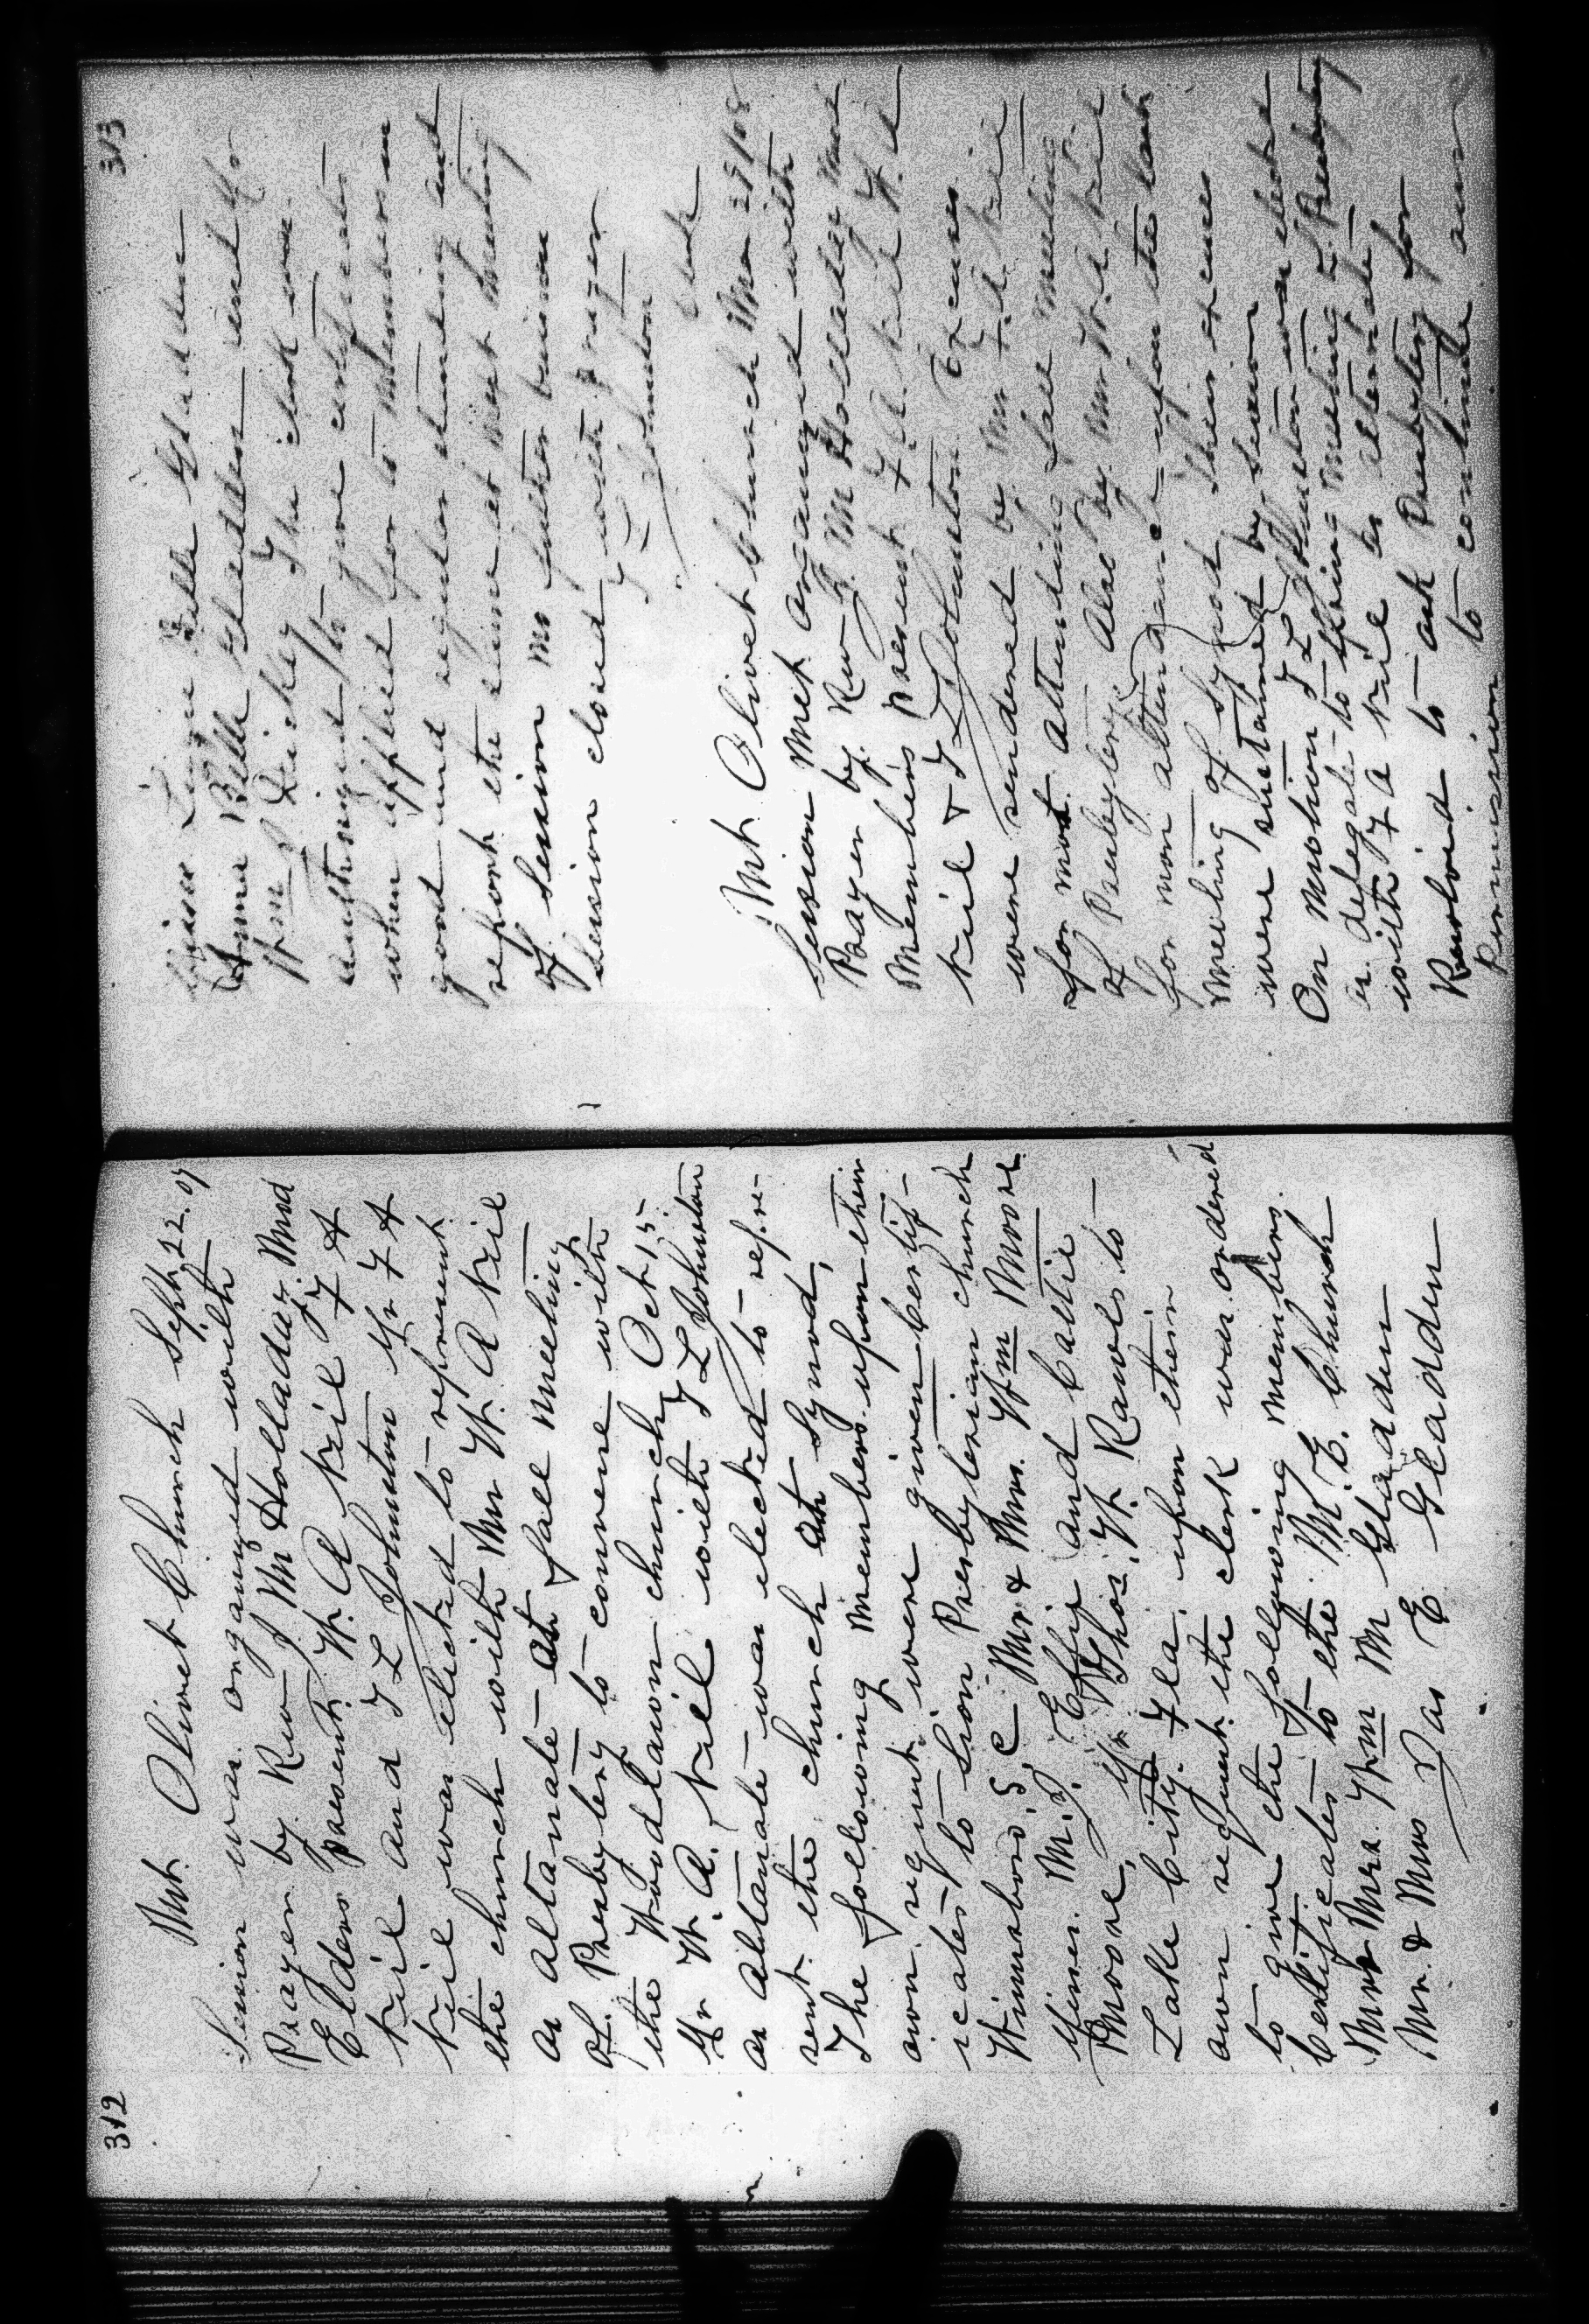 312
Mt. Olivet Church Sept. 22. 07
Session was organized with
Prayer by Rev J M Holladay Mod
Elders present. W. A Neil J F A
Neil and J L Johnston Mr F A
Neil was elected to represent
the church with Mr W. A Neil
as altanate at fall meeting
of Presbytery to convene with
the Woodlawn church, Oct 15.
Mr W. A. Neil with J L Johnston
as Altanate was elected to repre-
sent the church at Synod,
The following members upon their
own request were given Certif-
icates to Sion Presbyterian church
Winnsboro, S, C Mr & Mrs. Wm Moore
Misses M. J. Effie and Callie
Moore, Mr Thos. W. Rawls to
Lake City, Fla, upon their
own request the clerk was ordered
to give the following members.
Certificates to the M. E. Church
Mr & Mrs. Wm M Gladden
Mr. & Mrs Jas E Gladden
313
Misses Belle Gladden
Anna Belle Gladden and Mr
Wm Dickey The clerk was
authorized to give certificates
when applied for to members in
good and regular standing and
report the same at next meeting
of Session no further business
Session closed with prayer
J L Johnston
Clerk
Mt Olivet Church Mar 29/08
Session met organized with
Prayer by Rev J. M Holladay Mod
Members present F. A. Neil W. A
Neil & J L Johnston Excuses
were rendered by Mr F. A. Neil
for not attending fall meeting
of Presbytery Also by Mr W. A Neil
for non attendance upon the last
meeting of Synod their excuses
were sustained by Session
On motion J L Johnston was elected
as delegate to Spring meeting of Presbytery
with F A Neil as alternate
Resolved to ask Presbytery for
Permission to continue our